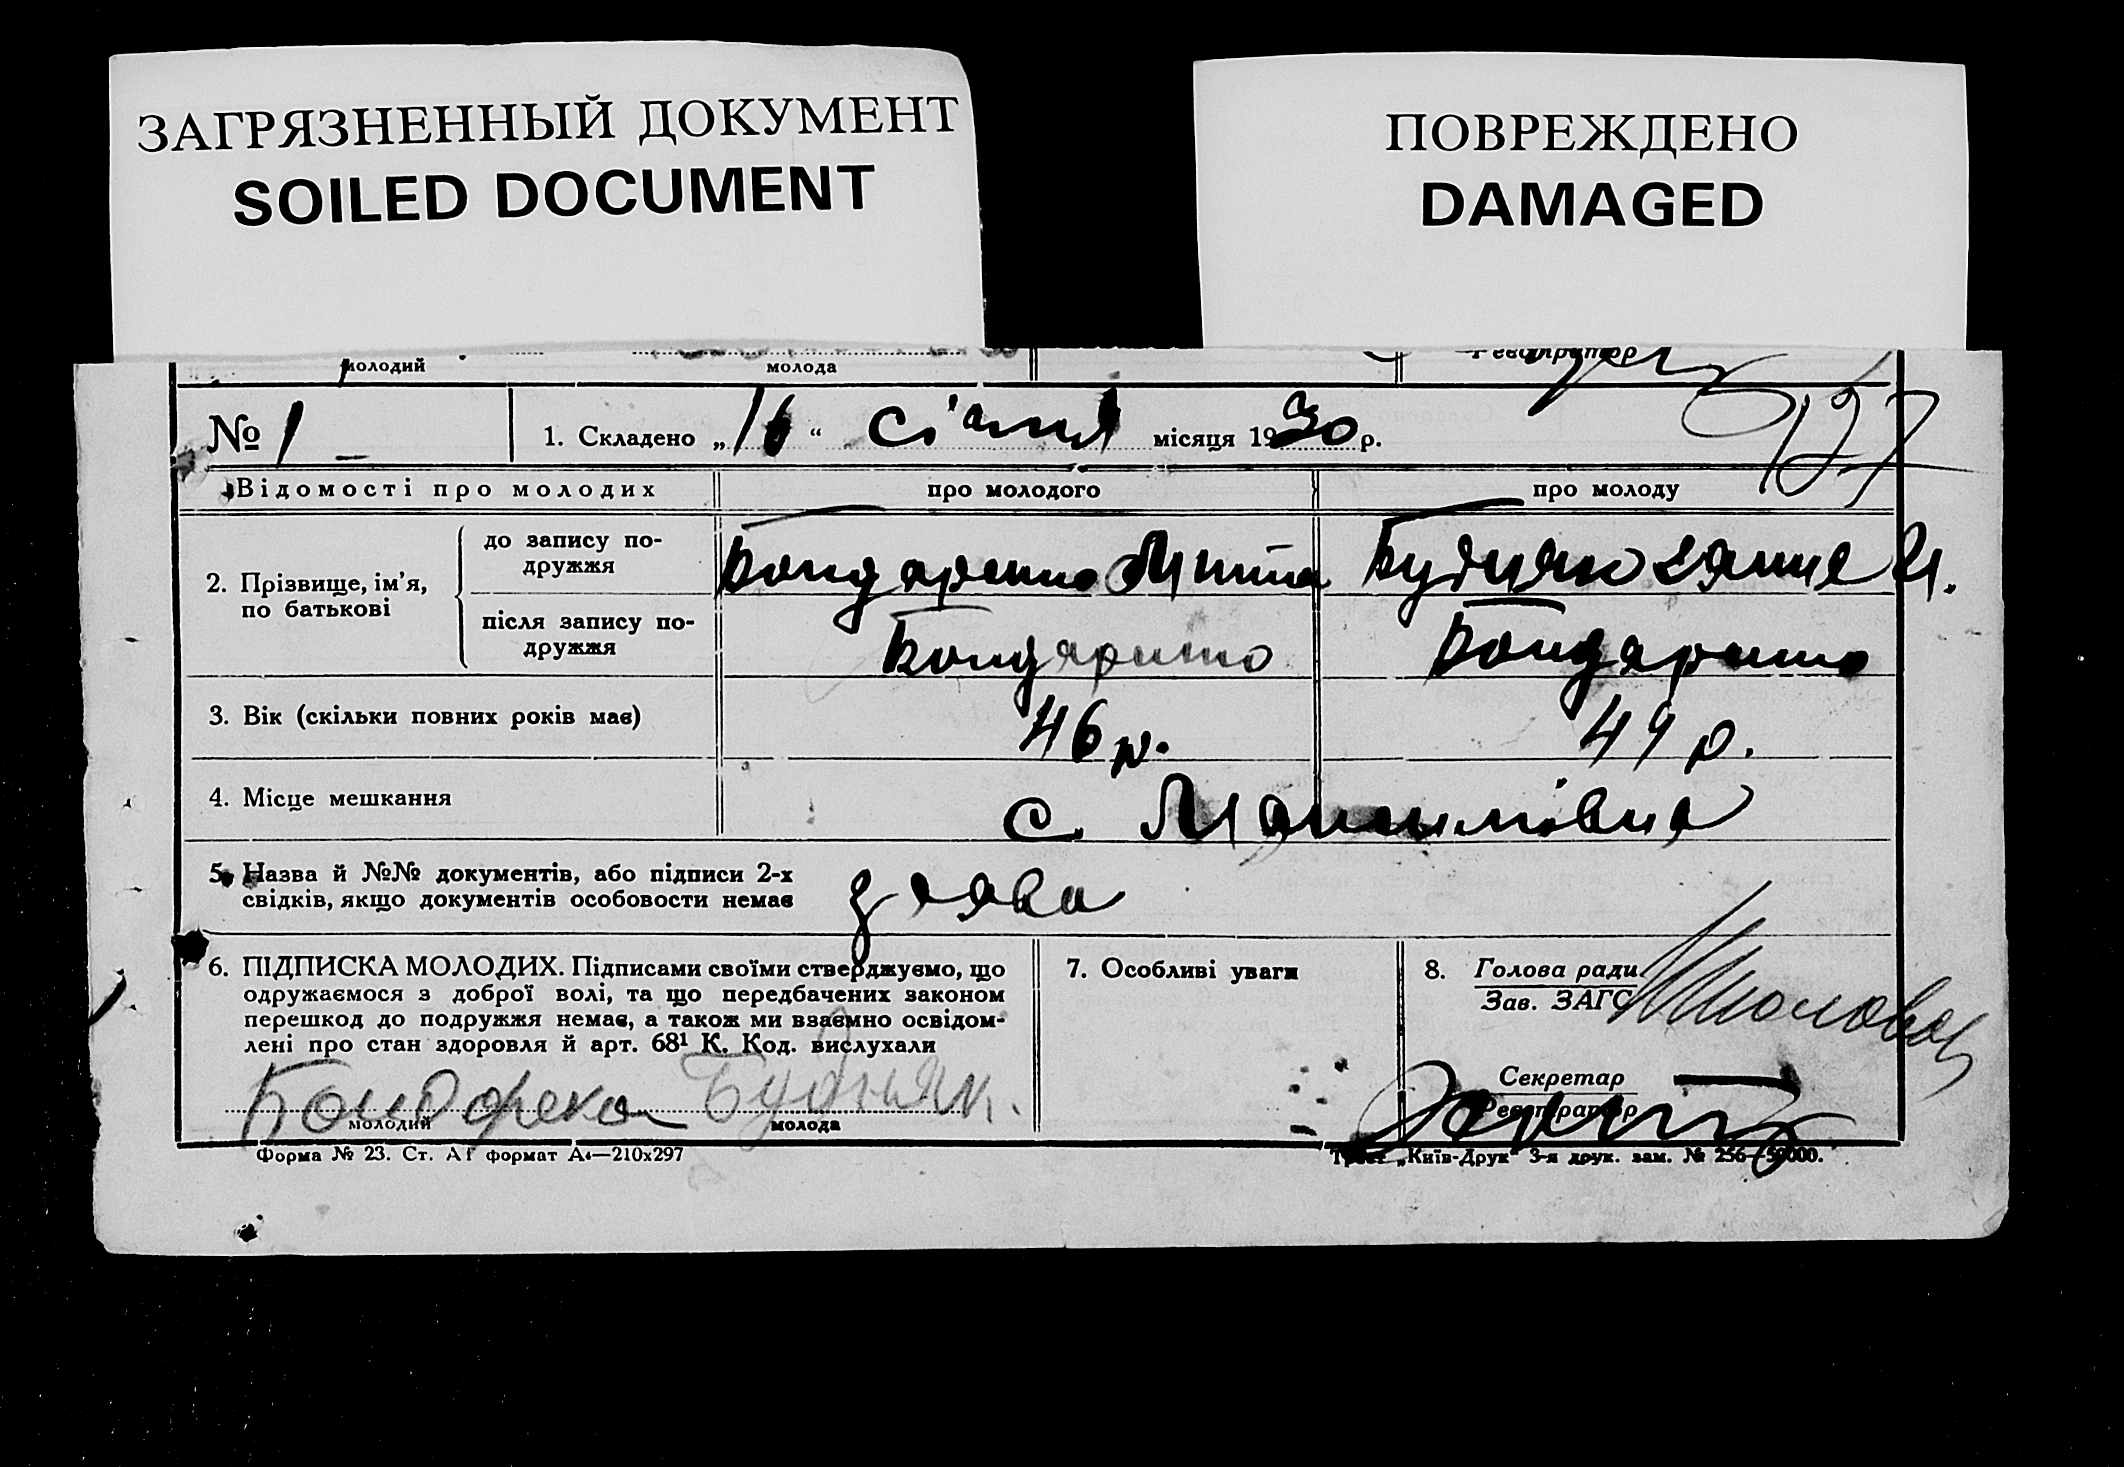 ЗАГРЯЗНЕННЫЙ ДОКУМЕНТ
SOILED DOCUMENT
ПОВРЕЖДЕНО
DAMAGED
молодий молода Реєстратор
№ 1 1. Складено „16“ січня місяця 1930 р. 127
Відомості про молодих про молодого про молоду
2. Прізвище, ім’я, по батькові
до запису по-
дружжя
Бондаренко Микита Будняк И.
після запису по-
дружжя
Бондаренко Бондаренко
3. Вік (скільки повних років має) 46 р. 49 р.
4. Місце мешкання с. Максимівка
5. Назва й №№ документів, або підписи 2-х
свідків, якщо документів особовости немає
заява
6. ПІДПИСКА МОЛОДИХ. Підписами своїми стверджуємо, що
одружаємося з доброї волі, та що передбачених законом
перешкод до подружжя немає, а також ми взаємно освідом-
лені про стан здоровля й арт. 68¹ К. Код. вислухали
Бондарека Будняк.
молодий молода
7. Особливі уваги
8. Голова ради
Зав. ЗАГС
Секретар
Реєстратор
Форма № 23. Ст. А1 формат А4—210х297
Трест „Київ-Друк“ 3-я друк. зам. № 256—50000.